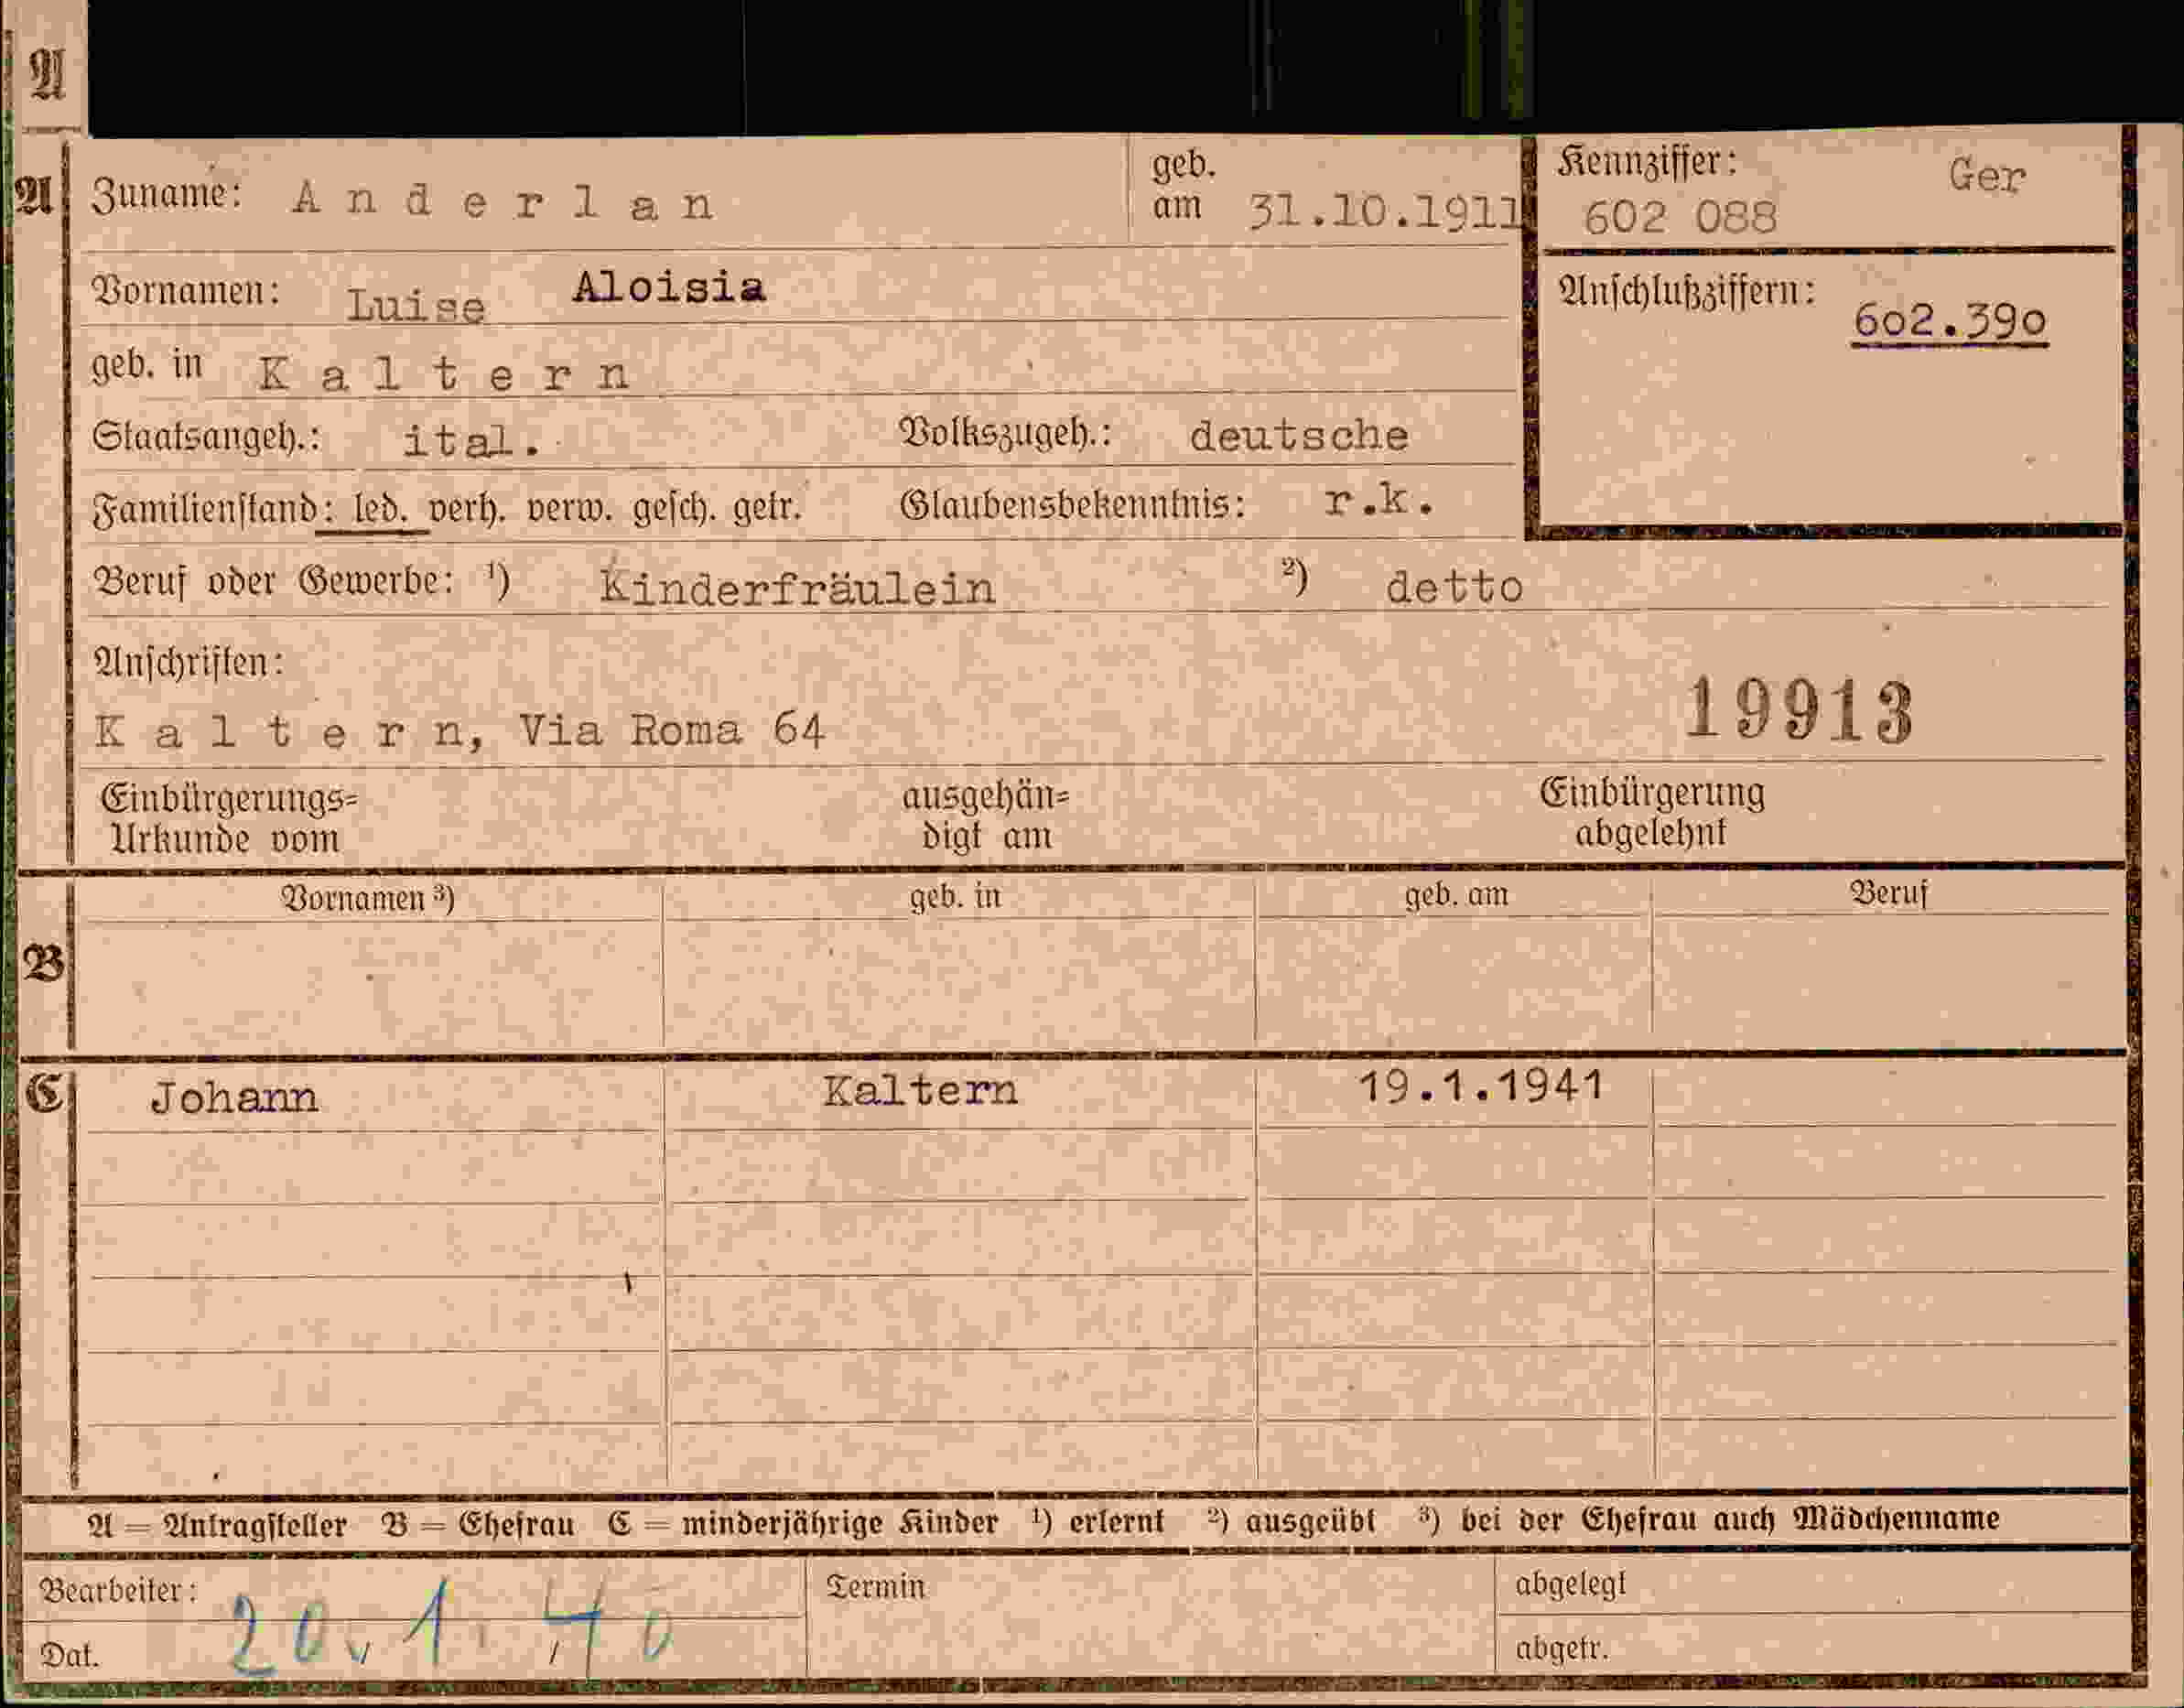 A
A
Zuname: Anderlan
geb. am 31.10.1911
Kennziffer: 602 088 Ger
Vornamen: Luise Aloisia
Anschlußziffern: 602.390
geb. in Kaltern
Staatsangeh.: ital. Volkszugeh.: deutsche
Familienstand: led. verh. verw. gesch. getr. Glaubensbekenntnis: r.k.
Beruf oder Gewerbe: ¹) Kinderfräulein ²) detto
Anschriften:
19913
Kaltern, Via Roma 64
Einbürgerungs= ausgehän= Einbürgerung
Urkunde vom digt am abgelehnt
Vornamen ³) geb. in geb. am Beruf
B
C Johann Kaltern 19.1.1941
A = Antragsteller B = Ehefrau C = minderjährige Kinder ¹) erlernt ²) ausgeübt ³) bei der Ehefrau auch Mädchenname
Bearbeiter: Termin abgelegt
Dat. 20. 1. 40 abgetr.